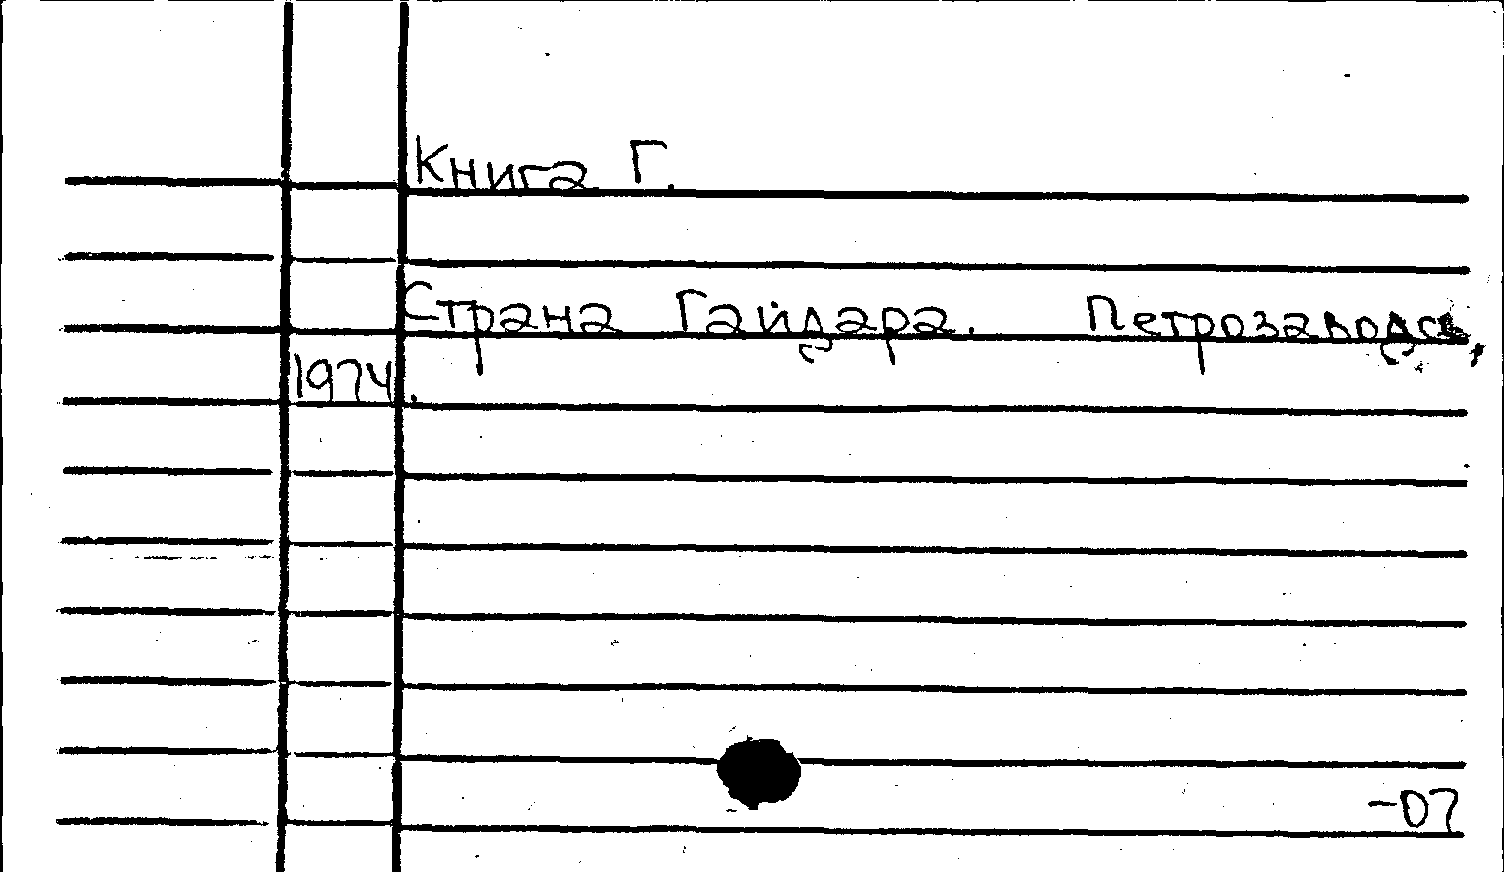 Книга Г.
Страна Гайдара. Петрозаводск,
1974.
-07